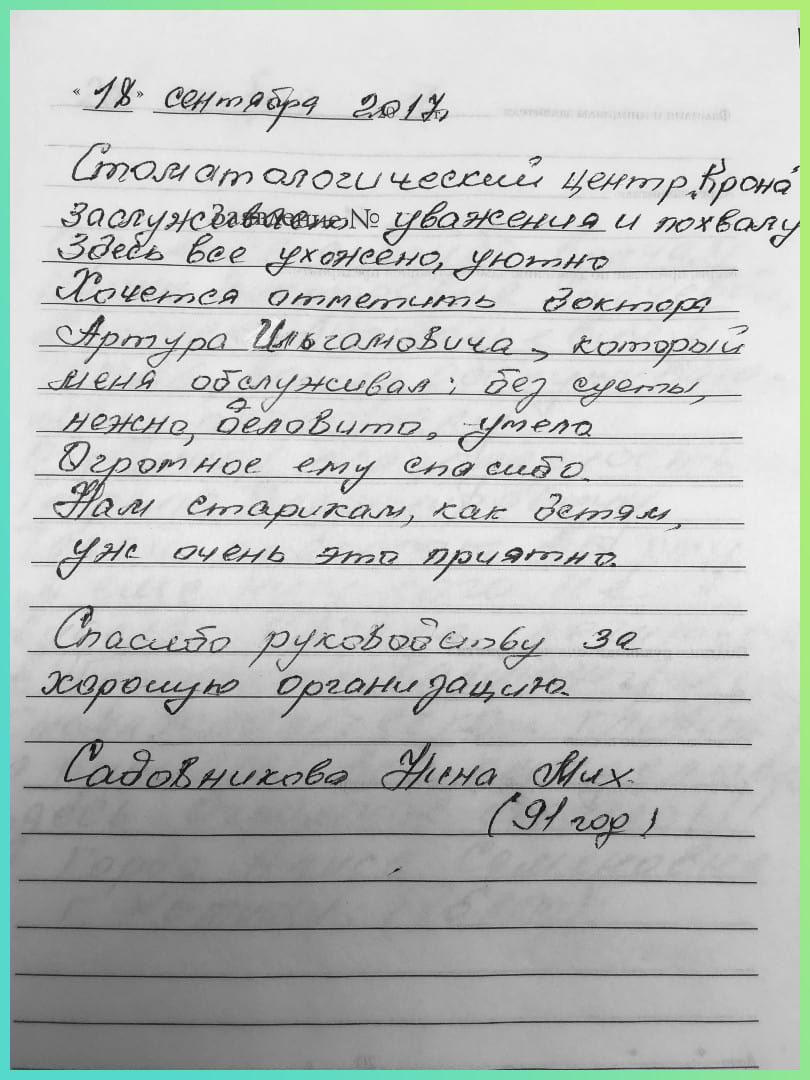 «18» сентября 2017г.
Стоматологический центр „Крона"
Заслуживает уважения и похвалу
Здесь все ухожено, уютно
Хочется отметить доктора
Артура Ильгамовича, который
меня обслуживал: без суеты,
нежно, деловито, умело
Огромное ему спасибо.
Нам старикам, как детям,
уж очень это приятно.
Спасибо руководству за
хорошую организацию.
Садовникова Нина Мих.
(91 год)